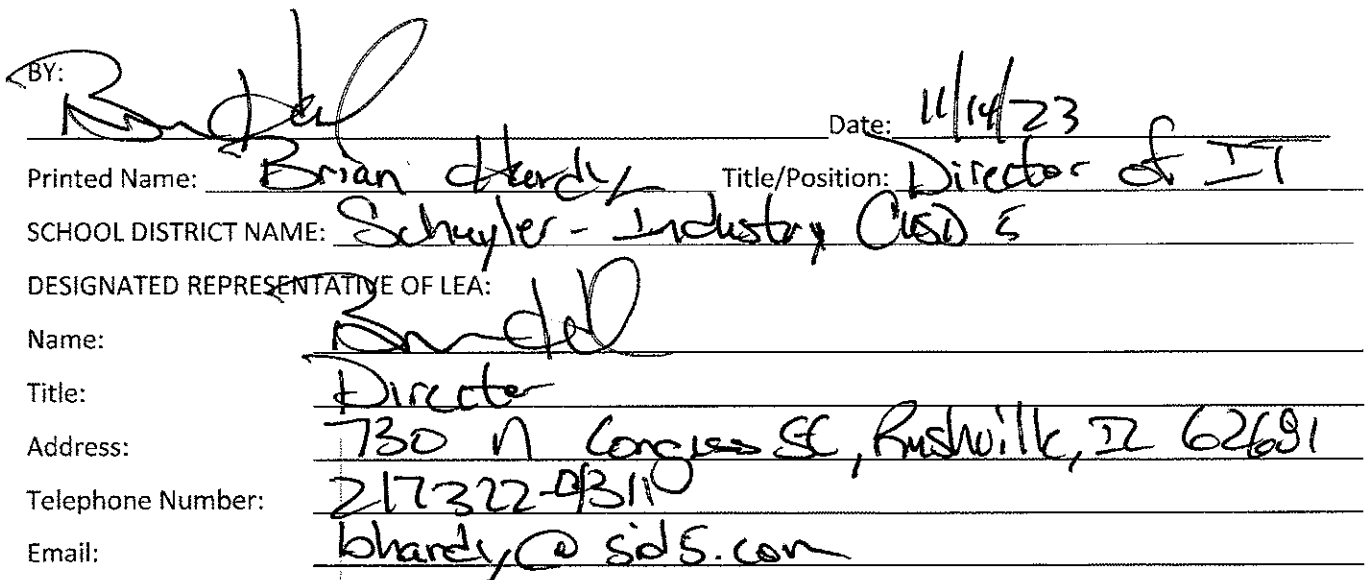 BY:
Date: 11/14/23
Printed Name: Brian Hardy Title/Position: Director of IT
SCHOOL DISTRICT NAME: Schuyler - Industry CUSD 5
DESIGNATED REPRESENTATIVE OF LEA:
Name:
Title: Director
Address: 730 N Congress St, Rushville, IL 62681
Telephone Number: 217322-4311
Email: bhardy@sid5.com